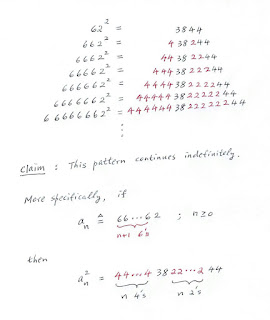 62² = 3844
662² = 438244
6662² = 44382244
66662² = 4443822244
666662² = 444438222244
6666662² = 44444382222244
66666662² = 4444443822222244
⋮
Claim : This pattern continues indefinitely.
More specifically, if
aₙ ≜ 66...62 ; n≥0
n+1 6's
then
aₙ² = 44...4 38 22...2 44
n 4's n 2's